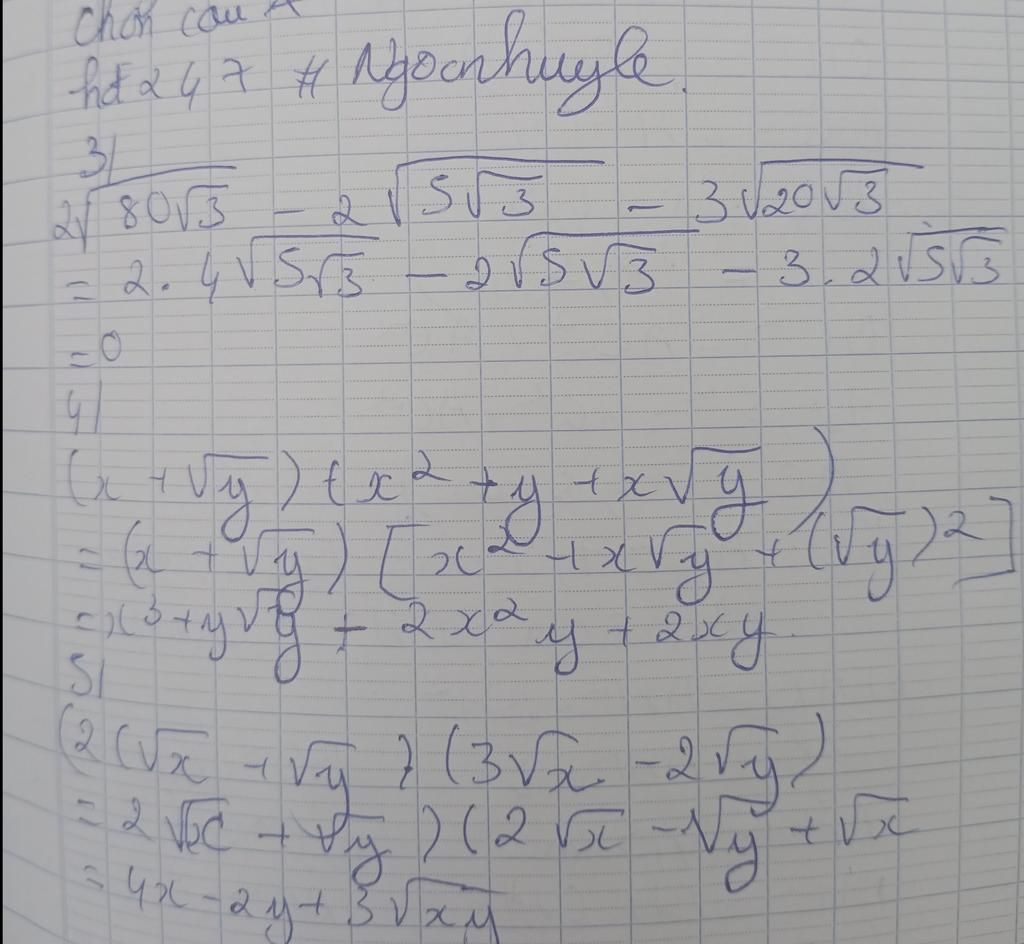 Chọn câu A
hd 247 # Ngocnhuyle.
3/
2√(80√3) - 2√(5√3) - 3√(20√3)
= 2.4√(5√3) - 2√(5√3) - 3.2√(5√3)
= 0
4/
(x + √y)(x² + y + x√y)
= (x + √y)[x² + x√y + (√y)²]
= x³ + y√y + 2x²y + 2xy.
5/
(2(√x + √y)(3√x - 2√y)
= 2√x + √y)(2√x - √y + √x
= 4x - 2y + 3√xy